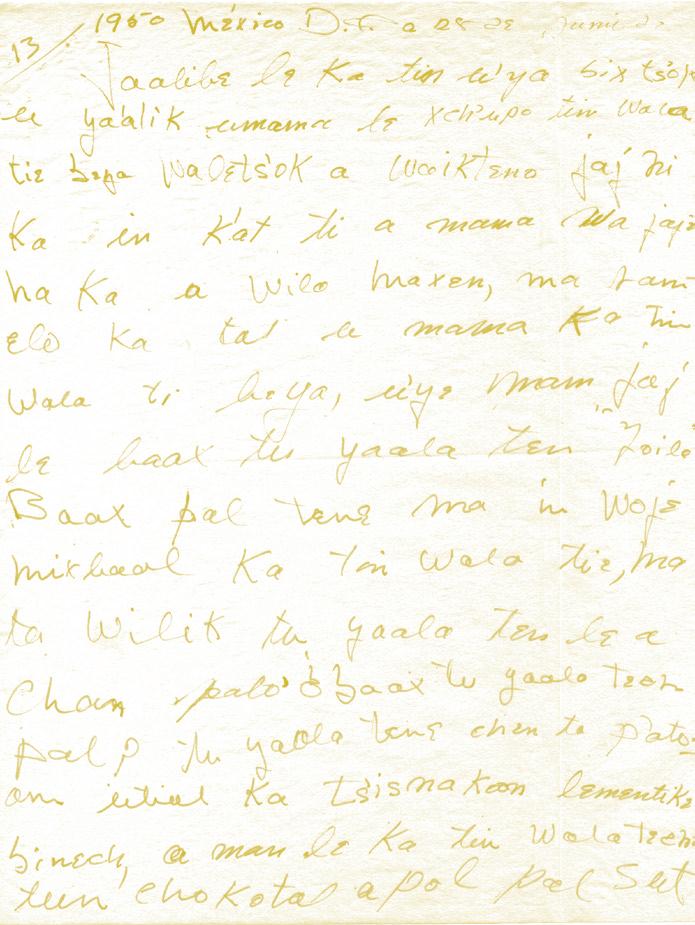 13/ 1950 México D.F. a 28 de
Jaalibe le Ka tin u'ya bix ts'o
u ya'alik umama le xch'upo tin wala
tie beya waletsok a waikteno jaj ni
Ka in K'at ti a mama wa jaj
ha Ka a wilo maxen, ma tam
elo Ka tal u mama Ka tin
wala ti beya, u'ye mam jaj
le baax tu yaala ten "Zoilo"
Baax pal tene ma in woje
mixbaal Ka tin wala tie, ma
ta wilik tu yaala ten le a
chan palo' ó baax tu yaala teen
pal? tu yaala tene chen ta p'ato
on utial Ka ts'isnakoon lementike
binech, a man le Ka tin wala teen
teen chokotal a pol pal sut